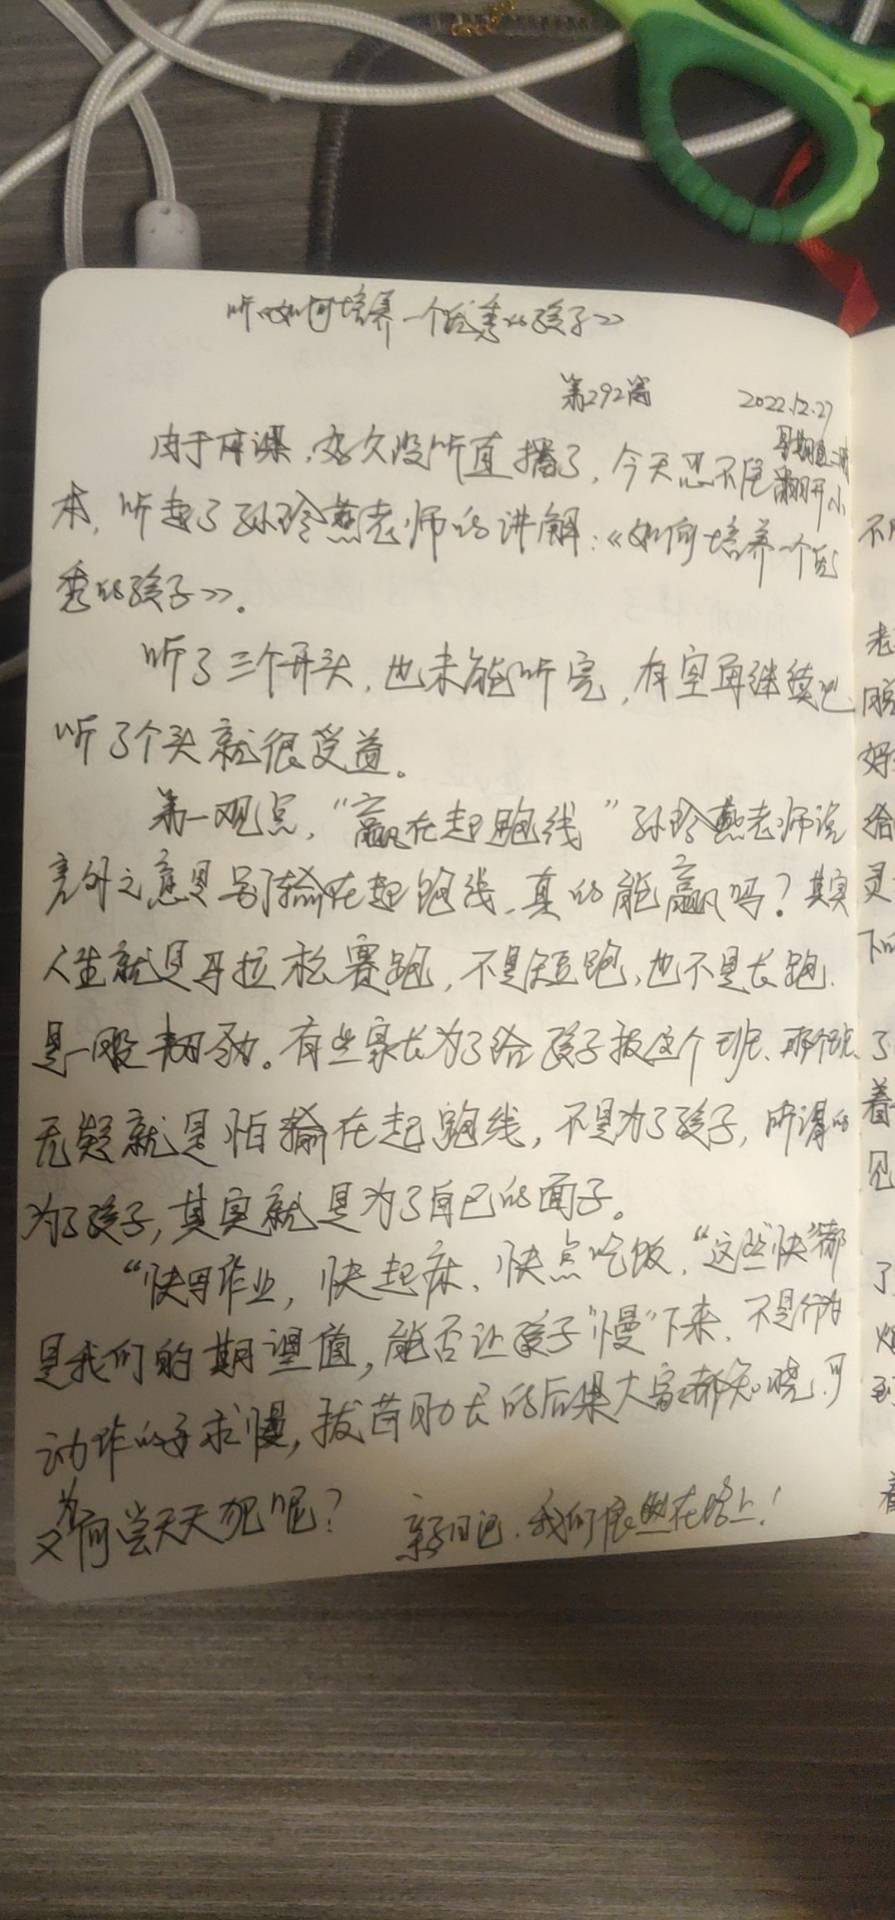 听《如何培养一个优秀的孩子》
第292篇 2022.12.27
星期二
由于停课,好久没听直播了,今天忍不住翻开小
本,听起了孙玲燕老师的讲解:《如何培养一个优
秀的孩子》。
听了三个开头,也未能听完,有空再继续吧
听了个头就很受益。
第一观点,“赢在起跑线”孙玲燕老师说
言外之意是别输在起跑线,真的能赢吗?其实
人生就是马拉松赛跑,不是短跑,也不是长跑,
是一股韧劲。有些家长为了给孩子报这个班、那个班,
无疑就是怕输在起跑线,不是为了孩子,所谓的
为了孩子,其实就是为了自己的面子。
“快写作业,快起床、快点吃饭,“这些“快”都
是我们的期望值,能否让孩子“慢”下来,不是行为
动作的子求慢,拔苗助长的后果大家都知晓,可
又为何尝天天犯呢?
亲子日记,我们依然在路上!
不
老
好
给
灵
下
了
着
见
了
到
着